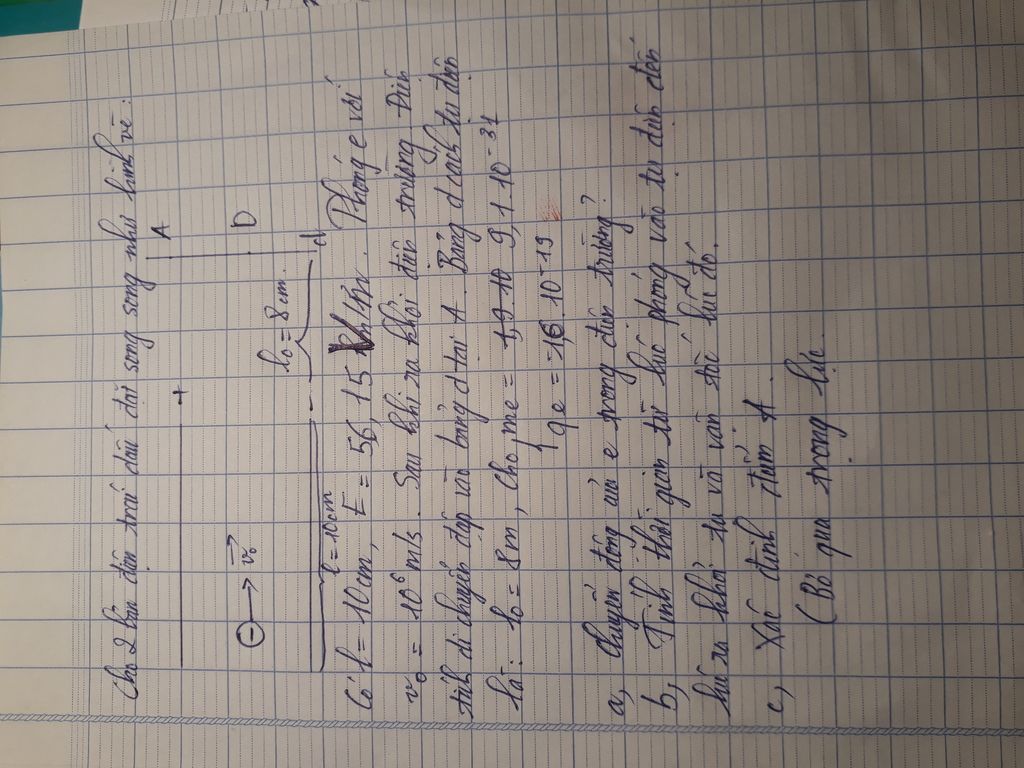 Cho 2 bản điện trái dấu đặt song song như hình vẽ:
+
A
→ v₀
D
l₀ = 8cm
d
l = 10cm
Có l = 10cm, E = 56,15 V/m. Phóng e với
v₀ = 10⁶ m/s. Sau khi ra khỏi điện trường. Điện
tích di chuyển đập vào bảng d tại A. Bảng d cách tụ điện
là: l₀ = 8m, cho me = 9,1.10⁻³¹
qe = -1,6.10⁻¹⁹
a, Chuyển động của e trong điện trường?
b, Tính thời gian từ lúc phóng vào tụ điện đến
lúc ra khỏi tụ và vận tốc lúc đó.
c, Xác định điểm A.
(Bỏ qua trọng lực